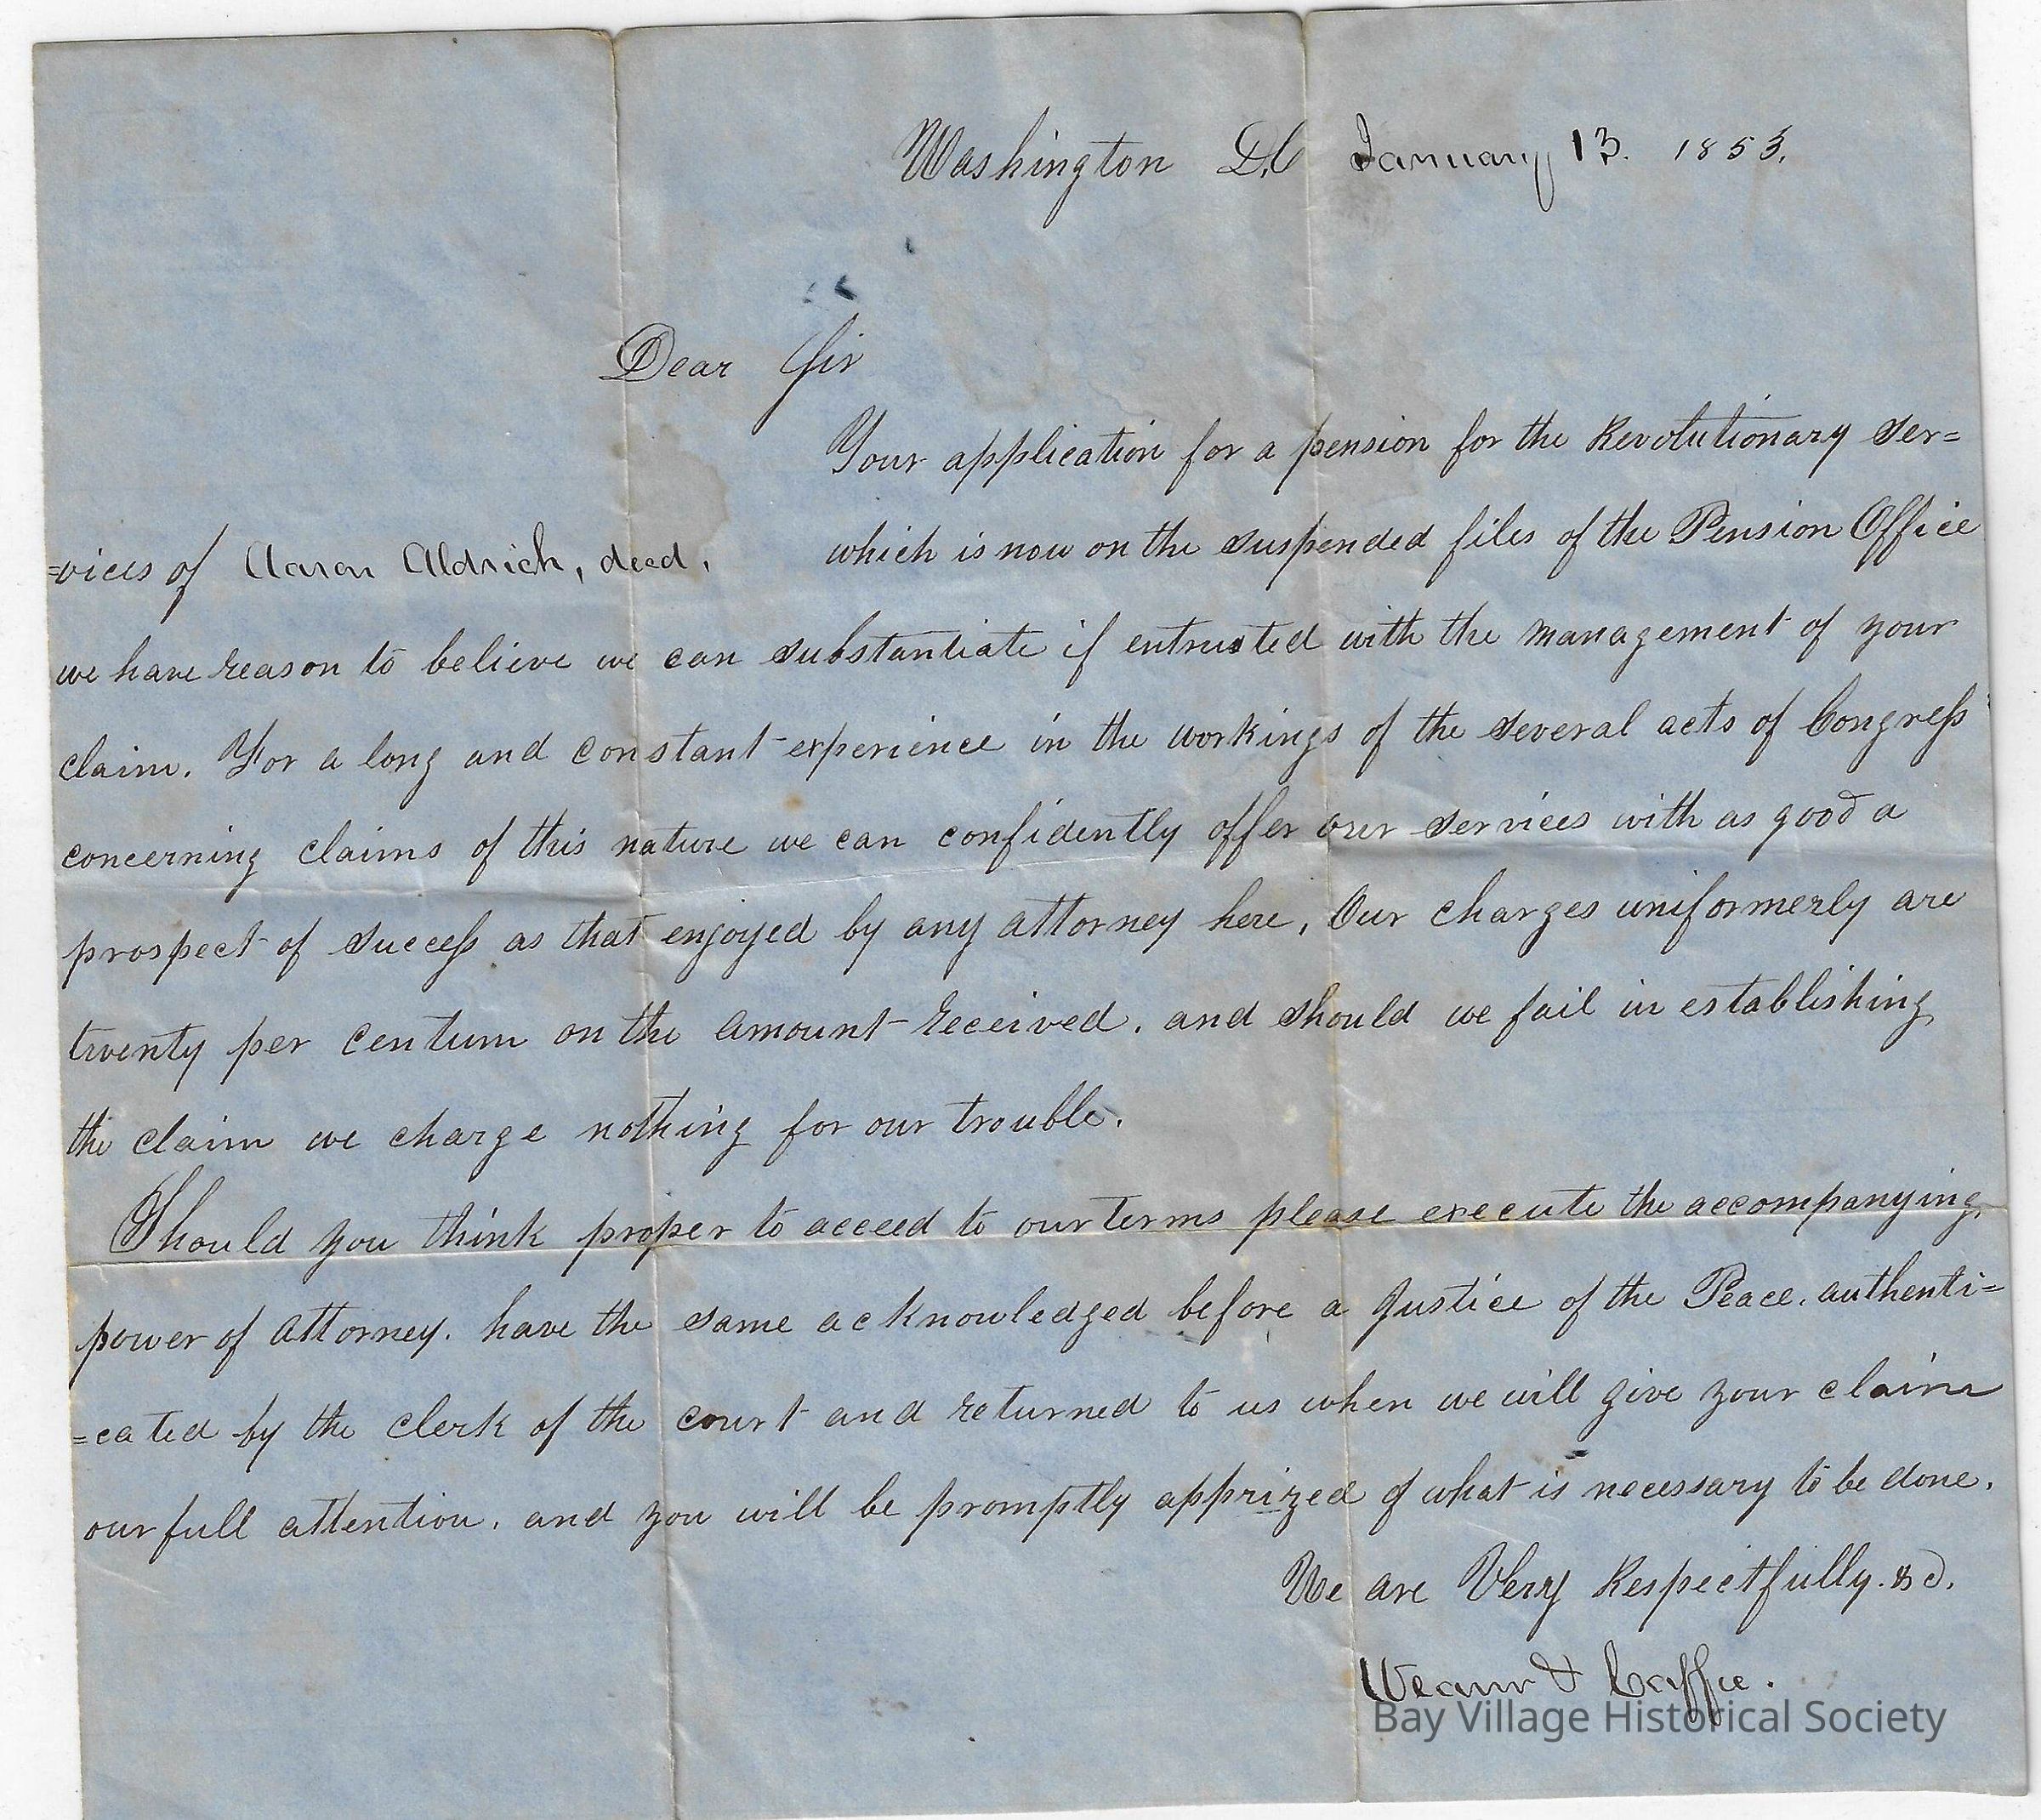 Washington D.C January 13. 1853.
Dear Sir
Your application for a pension for the Revolutionary Ser=
=vices of Aaron Aldrich, decd, which is now on the suspended files of the Pension Office
we have reason to believe we can substantiate if entrusted with the management of your
claim. For a long and constant experience in the workings of the several acts of Congress
concerning claims of this nature we can confidently offer our services with as good a
prospect of success as that enjoyed by any attorney here, Our charges uniformerly are
twenty per centum on the amount received. and should we fail in establishing
the claim we charge nothing for our trouble.
Should you think proper to acceed to our terms please execute the accompanying
power of Attorney. have the same acknowledged before a Justice of the Peace. authenti=
=cated by the clerk of the court and returned to us when we will give your claim
our full attention. and you will be promptly apprized of what is necessary to be done.
We are Very Respectfully. &c.
&
Bay Village Historical Society